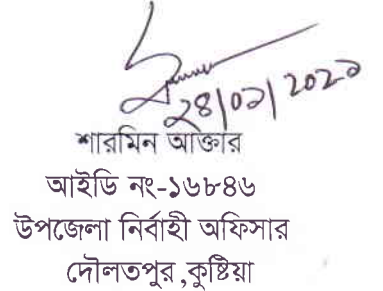 ২৪/০১/২০২১
শারমিন আক্তার
আইডি নং-১৬৮৪৬
উপজেলা নির্বাহী অফিসার
দৌলতপুর,কুষ্টিয়া